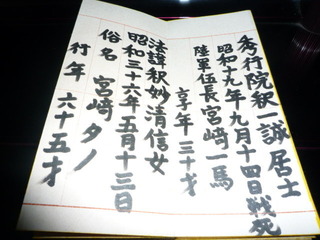 秀行院釈一誠居士
昭和十九年九月十四日戦死
陸軍伍長宮崎一馬
享年三十才
法諱釈妙清信女
昭和三十六年五月十三日
俗名 宮崎タノ
行年 六十五才